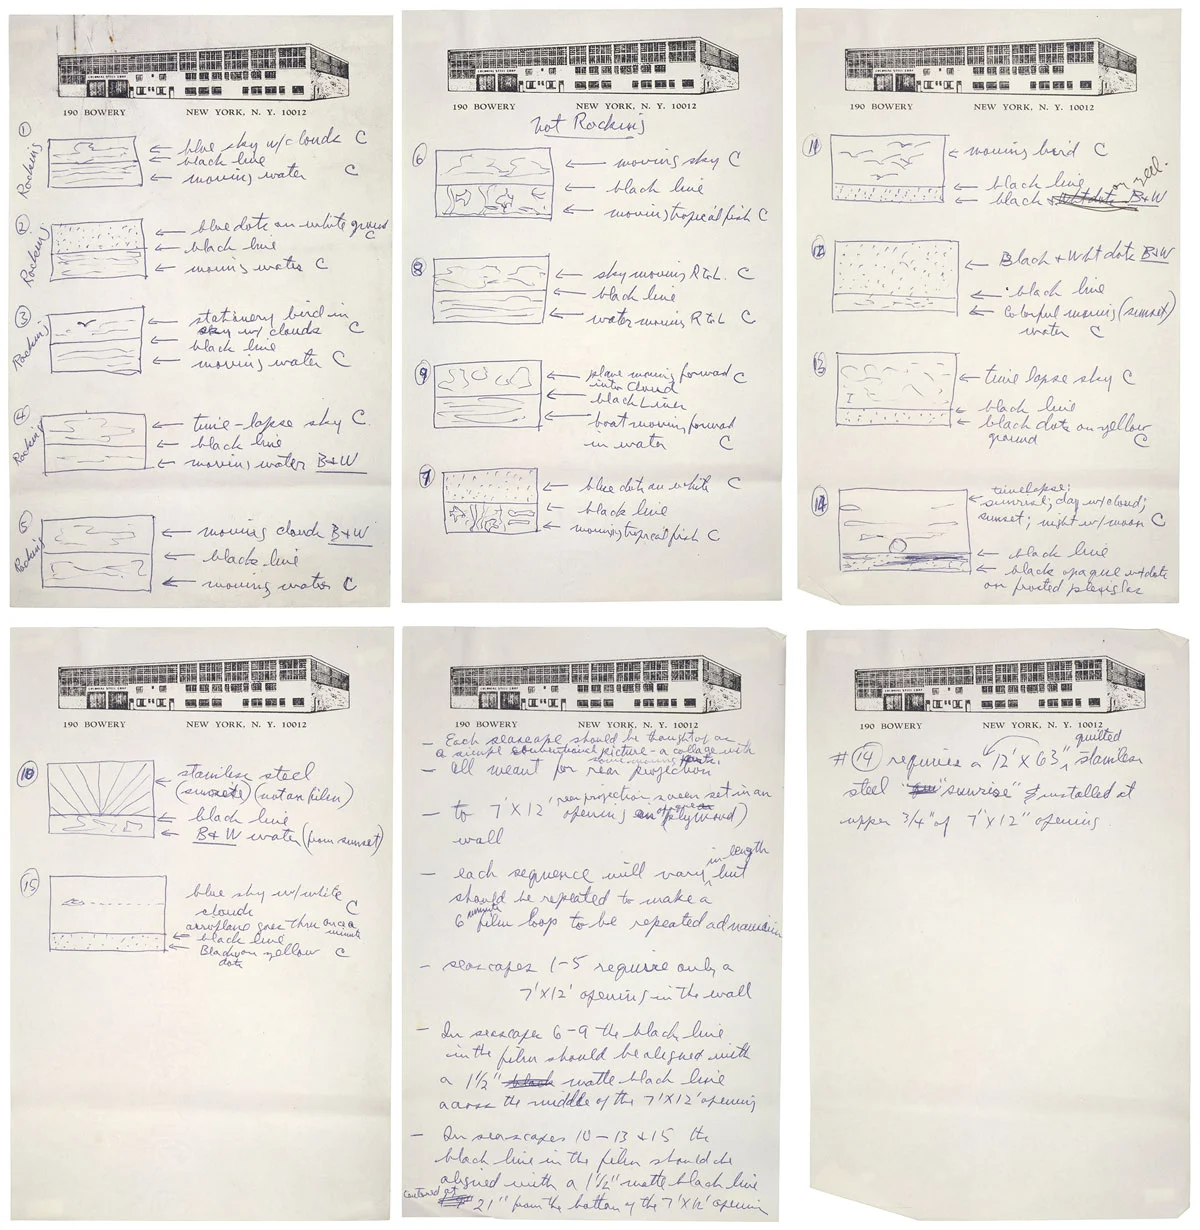 190 BOWERY NEW YORK, N. Y. 10012
① Rocking
blue sky w/clouds C
black line
moving water C
② Rocking
blue dots on white ground C
black line
moving water C
③ Rocking
stationary bird in
sky w/ clouds C
black line
moving water C
④ Rocking
time-lapse sky C.
black line
moving water B+W
⑤ Rocking
moving cloud B+W
black line
moving water C
190 BOWERY NEW YORK, N. Y. 10012
not Rocking
⑥
moving sky C
black line
moving tropical fish C
⑧
sky moving R to L. C
black line
water moving R to L C
⑨
plane moving forward
into cloud C
black liner
boat moving forward
in water C
⑦
blue dots on white C
black line
moving tropical fish C
190 BOWERY NEW YORK, N. Y. 10012
⑪
moving bird C
black line
black B+W
⑫
Black + Wht dots B+W
black line
colorful moving (sunset)
water C
⑬
time lapse sky C
black line
black dots on yellow
ground C
⑭
timelapse;
sunrise; day w/cloud;
sunset; night w/moon C
black line
black opaque w/dots
on frosted plexiglas
190 BOWERY NEW YORK, N. Y. 10012
⑩
stainless steel
(not on film)
black line
B+W water (from sunset)
⑮
blue sky w/white
clouds C
aeroplane goes thru once a
minute
black line
Black on yellow C
dots
190 BOWERY NEW YORK, N. Y. 10012
– Each seascape should be thought of as
a simple conventional picture – a collage with
some moving parts.
– all meant for rear projection
– to 7'X12' rear projection screen set in an
opening (plywood)
wall
– each sequence will vary in length but
should be repeated to make a
6 minute film loop to be repeated ad nauseum
– seascapes 1–5 require only a
7'X12' opening in the wall
– In seascapes 6–9 the black line
in the film should be aligned with
a 1½" black matte black line
across the middle of the 7'X12' opening
– In seascapes 10–13 & 15 the
black line in the film should be
aligned with a 1½" matte black line
centered at 21" from the bottom of the 7'X12' opening
190 BOWERY NEW YORK, N. Y. 10012
#⑭ requires a 12' X 63" quilted stainless
steel "sunrise" installed at
upper 3/4" of 7'X12" opening.